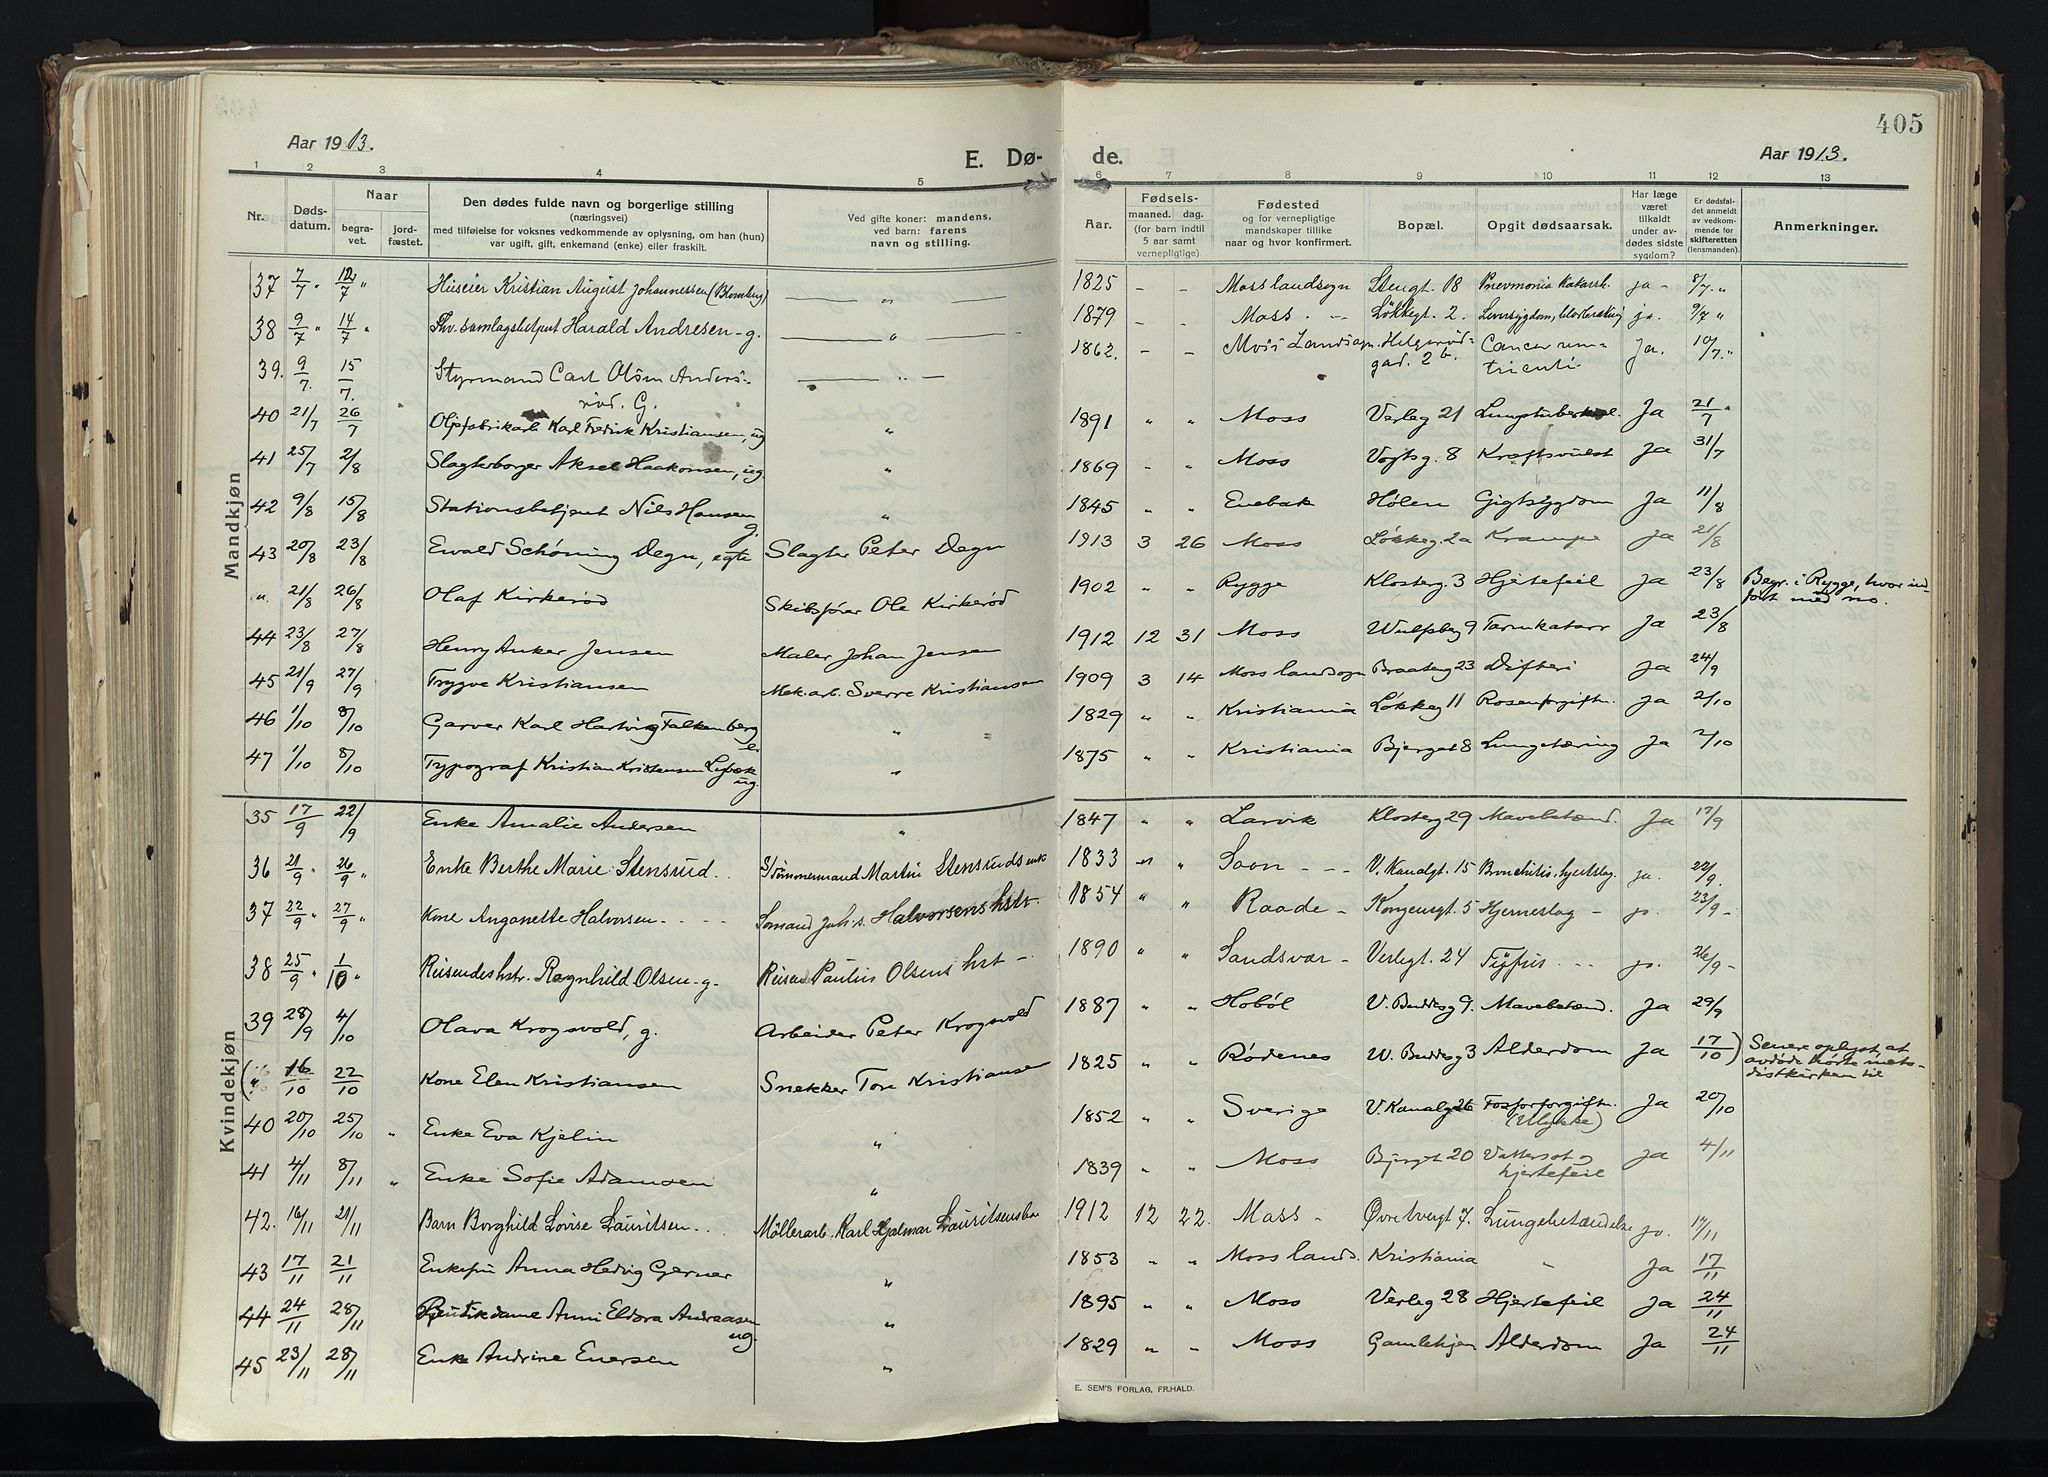 405
Aar 1913. E. Dø- de. Aar 1913.
1 2 3 4 5 6 7 8 9 10 11 12 13
Nr. Døds-datum. Naar begra-vet. jord-fæstet. Den dødes fulde navn og borgerlige stilling (næringsvei) med tilføielse for voksnes vedkommende av oplysning, om han (hun) var ugift, gift, enkemand (enke) eller fraskilt. Ved gifte koner: mandens, ved barn: farens navn og stilling. Aar. Fødsels- maaned. dag. (for barn indtil 5 aar samt vernepligtige) Fødested og for vernepligtige mandskaper tillike naar og hvor konfirmert. Bopæl. Opgit dødsaarsak. Har læge været tilkaldt under av-dødes sidste sygdom? Er dødsfal-det anmeldt av vedkom-mende for skifteretten (lensmanden). Anmerkninger.
Mandkjøn
37 7/7 " 12/7 " Huseier Kristian August Johannessen (Blomberg) " 1825 - - Moss landsogn Stengt. 18 Pnevmonia Katarrh. ja - 8/7 "
38 9/7 " 14/7 " Fhv. samlagsbetjent Harald Andresen - g. " 1879 - - Moss . -- Løkkegt. 2. Leversygdom, ja. 9/7 "
39. 9/7. 15/7. Styrmand Carl Olsen Anders-rød. G. " 1862. - - Moss Landsogn. Helgerød-gad. 2 b. Cancer ven-triculi. Ja. 10/7. "
40 21/7 26/7 Oljefabrikarb. Karl Fredrik Kristiansen, ug " 1891 " " Moss Verleg 21 Lungetuberkul. Ja 21/7 "
41 25/7 2/8 Slagterborger Aksel Haakonsen, ug. " 1869 - - Moss Vogtsg. 8 Kræftsvulst Ja 31/7
42 9/8 15/8 Stationsbetjent Nils Hansen g. " 1845 " " Enebak Hølen Gigtsygdom Ja 11/8
43 20/8 23/8 Ewald Schøning Degn, egte Slagter Peter Degn 1913 3 26 Moss Løkkeg. 2a Krampe Ja 21/8
" 21/8 26/8 Olaf Kirkerød Skibsfører Ole Kirkerød 1902 " " Rygge Klosterg. 3 Hjertefeil Ja 23/8 Begr. i Rygge, hvor ind-ført med no.
44 23/8 27/8 Henry Anker Jensen Maler Johan Jensen 1912 12 31 Moss Wulfsbg 9 Tarmkatarr Ja 23/8
45 21/9 27/9 Trygve Kristiansen Mek. arb. Sverre Kristiansen 1909 3 14 Moss landsogn Braateng 23 Difteri Ja 24/9
46 1/10 8/10 Garver Karl Hartvig Falkenberg " 1829 " " Kristiania Løkkeg 11 Rosenforgiftn. Ja 2/10
47 1/10 8/10 Typograf Kristian Kristensen ug. " 1875 " " Kristiania Bjerget 8 Lungetæring Ja 2/10
Kvindekjøn
35 17/9 22/9 Enke Amalie Andersen " 1847 " " Larvik Klosterg 29 Mavebetænd. Ja 17/9
36 21/9 " 26/9 " Enke Berthe Marie Stensrud. . Tømmermand Martin Stensruds enk 1833 " " Soon - - - V. Kanalgt. 15 Bronchitis, hjerteslag ja. 22/9.
37 22/9 " 27/9 " Kone Anganette Halvorsen - - - Sømand Joh's. Halvorsens hstr. 1854 " " Raade - Kongensgt. 5 Hjerneslag - ja. 23/9 -
38 25/9 " 1/10 " Reisendes hstr. Ragnhild Olsen - g. Reisend Paulus Olsens hst - 1890 " " Sandsvær - Verlegt. 24 Tyfus - - - ja. 26/9 -
39 28/9 4/10 Olava Krogsvold, g. Arbeider Peter Krogsvold 1887 " " Hobøl V. Buddesg 9. Mavebetænd. Ja 29/9
(" 16/10 22/10 Kone Elen Kristiansen Snekker Tore Kristiansen 1825 " " Rødenes W. Buddesg 3 Alderdom Ja 17/10) Senere oplyst at avdøde hørte met-odistkirken til
40 20/10 25/10 " Enke Eva Kjelin " 1852 " " Sverige V. Kanalg 26 Fosforforgiftn. (Ulykke) Ja 20/10
41 4/11 8/11 " Enke Sofie Adamsen " 1839 " " Moss Bjerget 20 Vattersot og hjertefeil Ja 4/11
42. 16/11 21/11 Barn Borghild Lovise Lauritsen . . Møllerarb. Karl Hjalmar Lauritsens ba 1912 12 22. Moss - Øvre tvergt 7. Lungebetændelse ja. 17/11
43 17/11 21/11 Enkefru Anna Hedvig Gerner " 1853 " " Moss lands. Kristiania " Ja 17/11
44 24/11 28/11 Butikdame Anni Eldora Andreasen ug. " 1895 " " Moss Verleg 28 Hjertefeil Ja 24/11
45 23/11 28/11 Enke Andrine Enersen " 1829 " " Moss Gamlehjem Alderdom Ja 24/11
E. SEM'S FORLAG, FR.HALD.